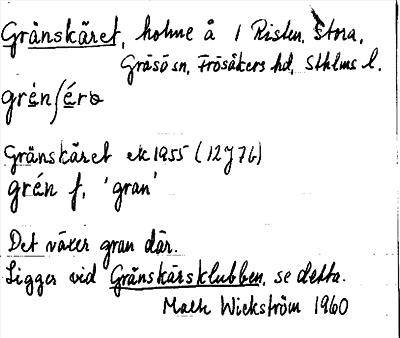 Gränskäret, holme å 1 Risten, Stora,
Gräsö sn, Frösåkers hd, Sthlms l.
grén∫éro
Gränskäret ek 1955 (12J7b)
grén f, 'gran'
Det växer gran där.
Ligger vid Gränskärsklubben, se detta.
Mats Wickström 1960